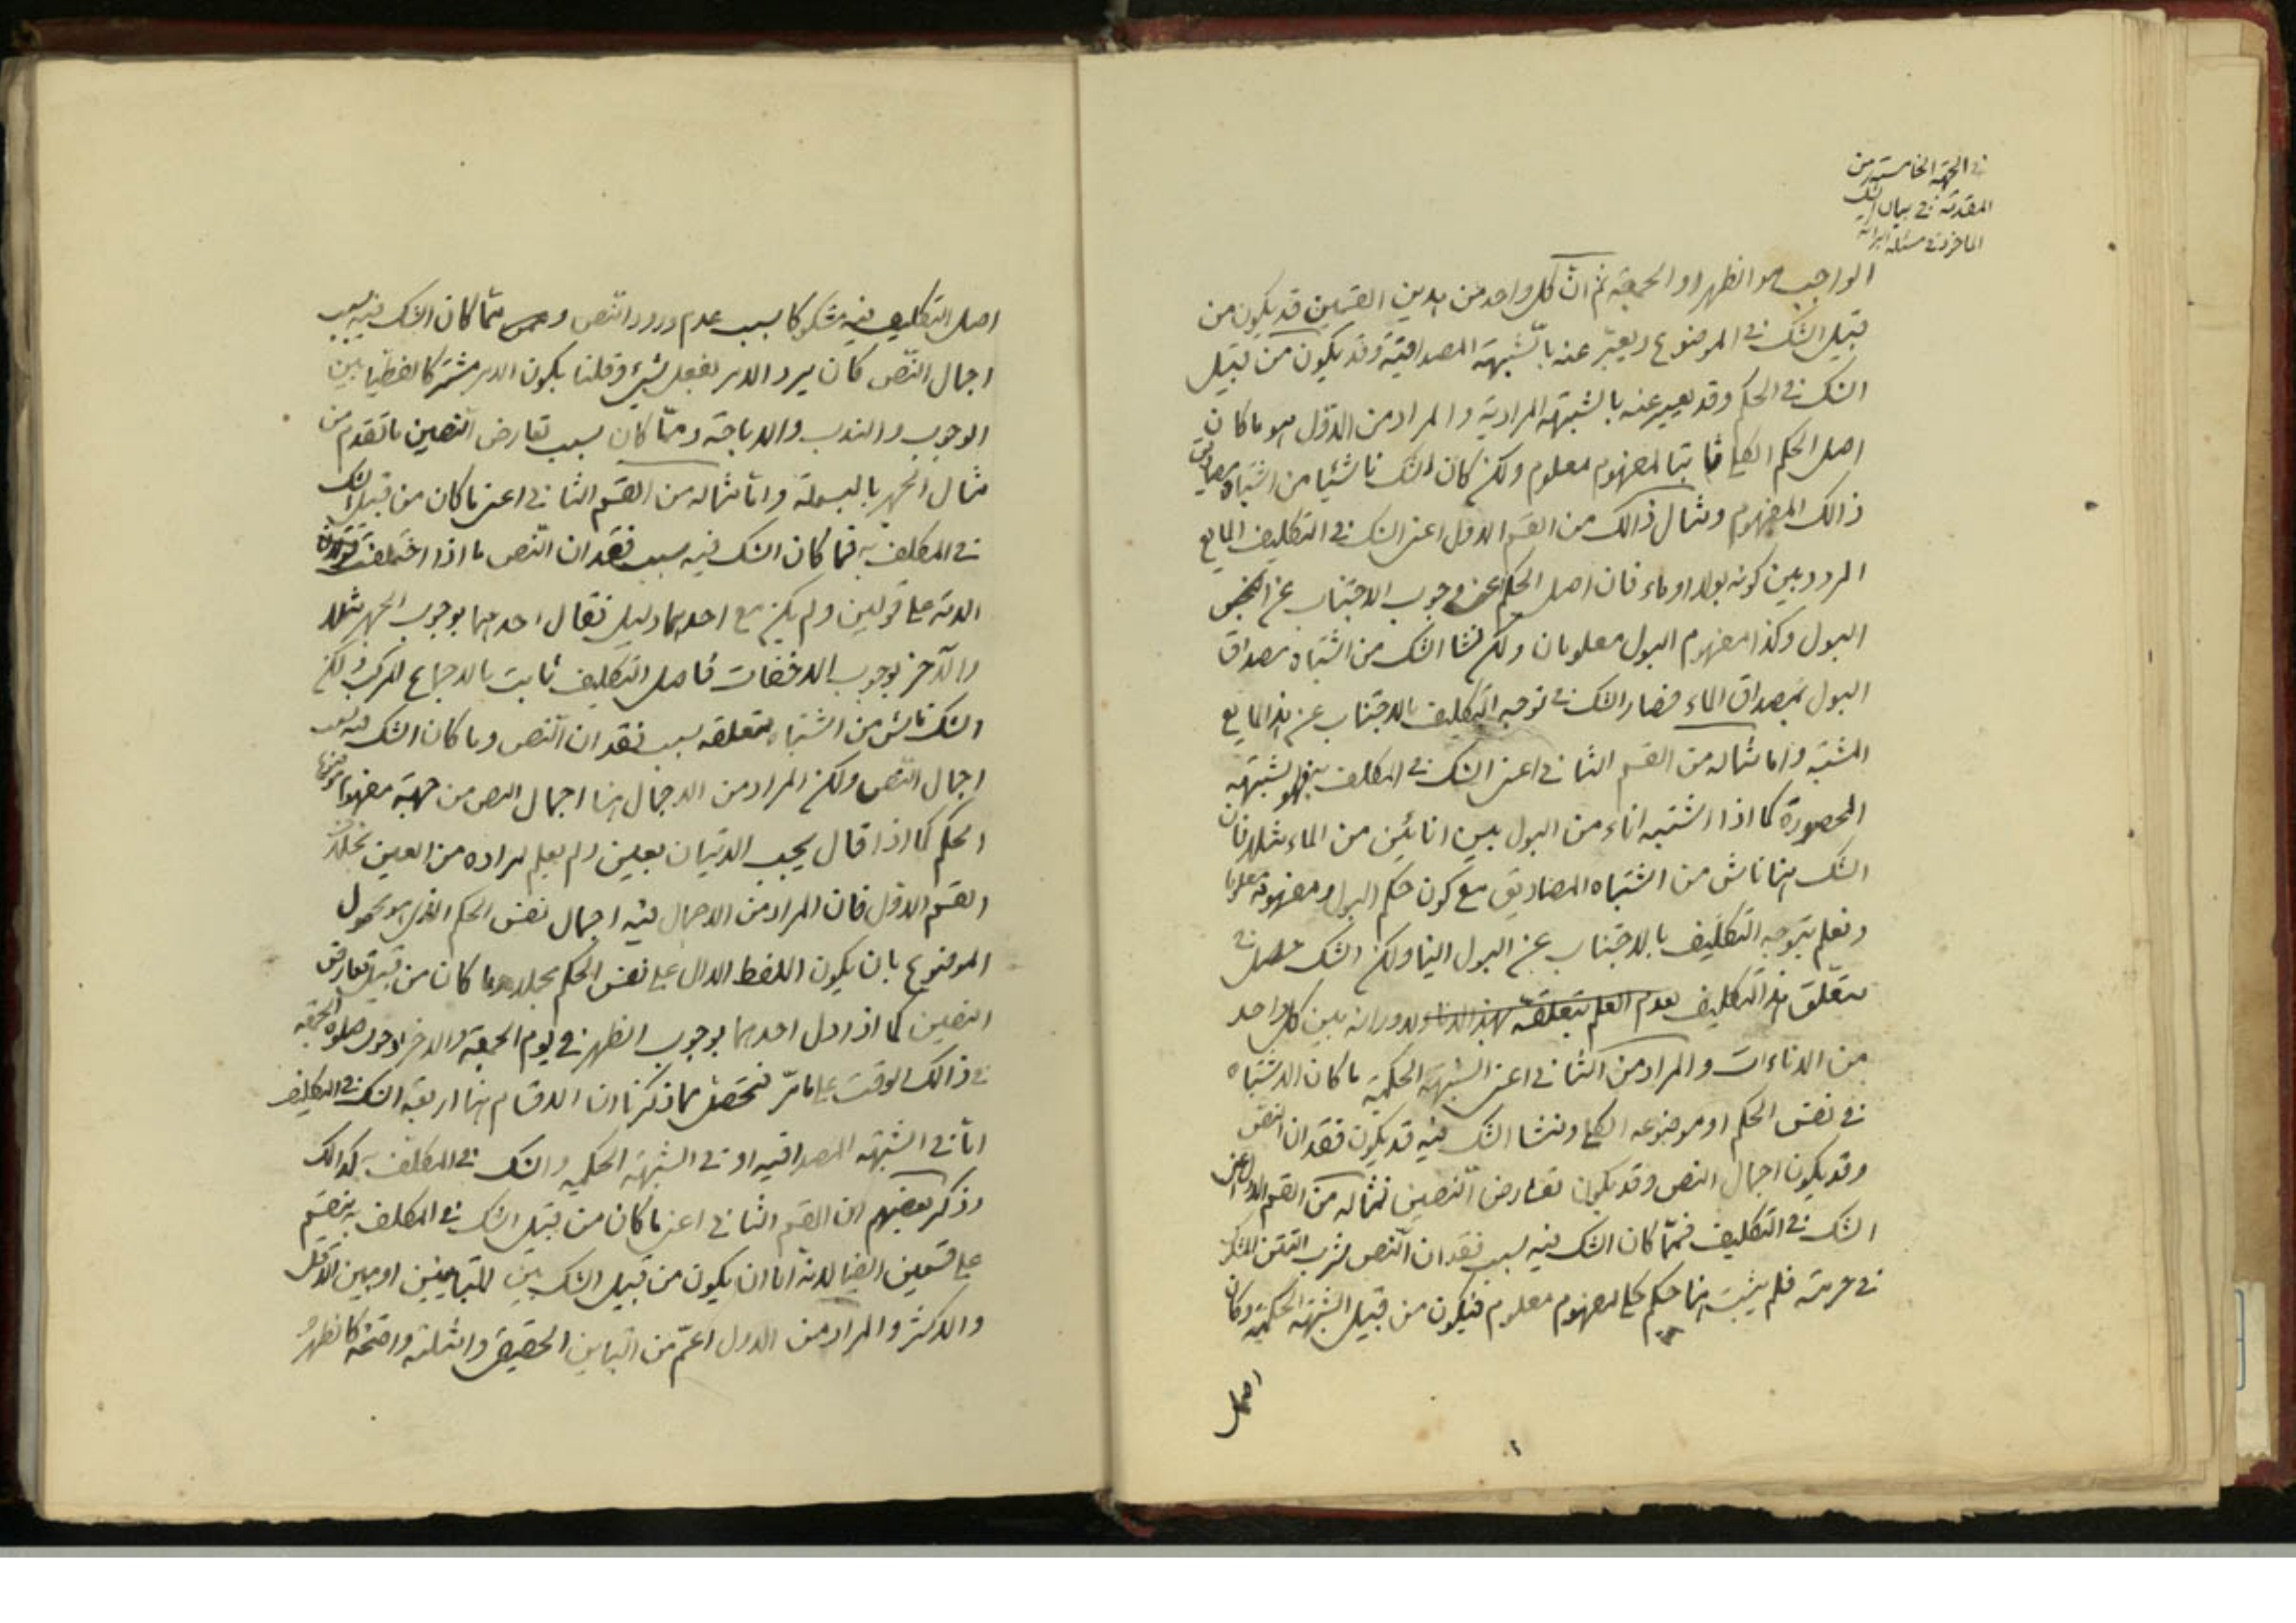 في الجهة الخامسة من
المقدمة في بيان الشك
الماخوذ في مسئلة البرائة
الواجب هو الظهر او الجمعة ثم انّ كل واحد من هذين القسمين قد يكون من
قبيل الشك في الموضوع ويعبّر عنه بالشبهة المصداقية وقد يكون من قبيل
الشك في الحكم وقد يعبر عنه بالشبهة المرادية والمراد من الاول هو ما كان
اصل الحكم الكلي ثابتا لمفهوم معلوم ولكن كان الشك ناشئا من اشتباه مصاديق
ذالك المفهوم ومثال ذالك من القسم الاول اعنى الشك في التكليف المايع
المردد بين كونه بولا او ماء فان اصل الحكم اعنى وجوب الاجتناب عن النجس
البول وكذا مفهوم البول معلومان ولكن نشا الشك من اشتباه مصداق
البول بمصداق الماء فصار الشك في توجه التكليف بالاجتناب عن هذا المايع
المشتبه واما مثاله من القسم الثاني اعنى الشك في المكلف به فهو الشبهة
المحصورة كما اذا اشتبه اناء من البول بين انائين من الماء مثلا فان
الشك هنا ناش من اشتباه المصاديق مع كون حكم البول ومفهومه معلوما
ونعلم بتوجه التكليف بالاجتناب عن البول الينا ولكن الشك حصل في
متعلق هذا التكليف لعدم العلم بتعلقه بهذا الاناء ولدورانه بين كل واحد
من الاناءات والمراد من الثاني اعنى الشبهة الحكمية ما كان الاشتباه
في نفس الحكم او موضوعه الكلي ومنشا الشك فيه قد يكون فقدان النص
وقد يكون اجمال النص وقد يكون تعارض النصين فمثاله من القسم الاول اعنى
الشك في التكليف فممّا كان الشك فيه بسبب فقدان النص شرب التتن للشك
في حرمته فلم يثبت هنا حكم كلي لمفهوم معلوم فيكون من قبيل الشبهة الحكمية وكان
اصل
اصل التكليف فيه مشكوكا بسبب عدم ورود النص وممّا كان الشك فيه بسبب
اجمال النّص كان يرد الامر بفعل شيء وقلنا بكون الامر مشتركا لفظيا بين
الوجوب والندب والاباحة وممّا كان بسبب تعارض النصين ما تقدم من
مثال الجهر بالبسملة وامّا مثاله من القسم الثاني اعنى ما كان من قبيل الشك
في المكلف به فما كان الشك فيه بسبب فقدان النّص ما اذا اختلفت
الامة على قولين ولم يكن مع احدهما دليل فقال احدهما بوجوب الجهر مثلا
والآخر بوجوب الاخفات فاصل التكليف ثابت بالاجماع المركب ولكن
الشك ناش من اشتباه متعلقه بسبب فقدان النص وما كان الشك فيه بسبب
اجمال النّص ولكن المراد من الاجمال هنا اجمال النص من جهة مفهوم موضوع
الحكم كما اذا قال يجب الاتيان بعين ولم يعلم مراده من العين بخلاف
القسم الاول فان المراد من الاجمال فيه اجمال نفس الحكم الذي هو محمول
الموضوع بان يكون اللفظ الدال على نفس الحكم مجملا وما كان من قبيل تعارض
النصين كما اذا دل احدهما بوجوب الظهر في يوم الجمعة والاخر بوجوب صلوة الجمعة
في ذالك الوقت على ما مرّ فتحصّل مما ذكرنا ان الاقسام هنا اربعة الشك في التكليف
امّا في الشبهة المصداقية او في الشبهة الحكمية والشك في المكلف به كذالك
وذكر بعضهم ان القسم الثاني اعنى ما كان من قبيل الشك في المكلف به ينقسم
على قسمين ايضا لانه اما ان يكون من قبيل الشك بين المتباينين او بين الاقل
والاكثر والمراد من الاول اعمّ من التباين الحقيقي وامثلته واضحة كالظهر